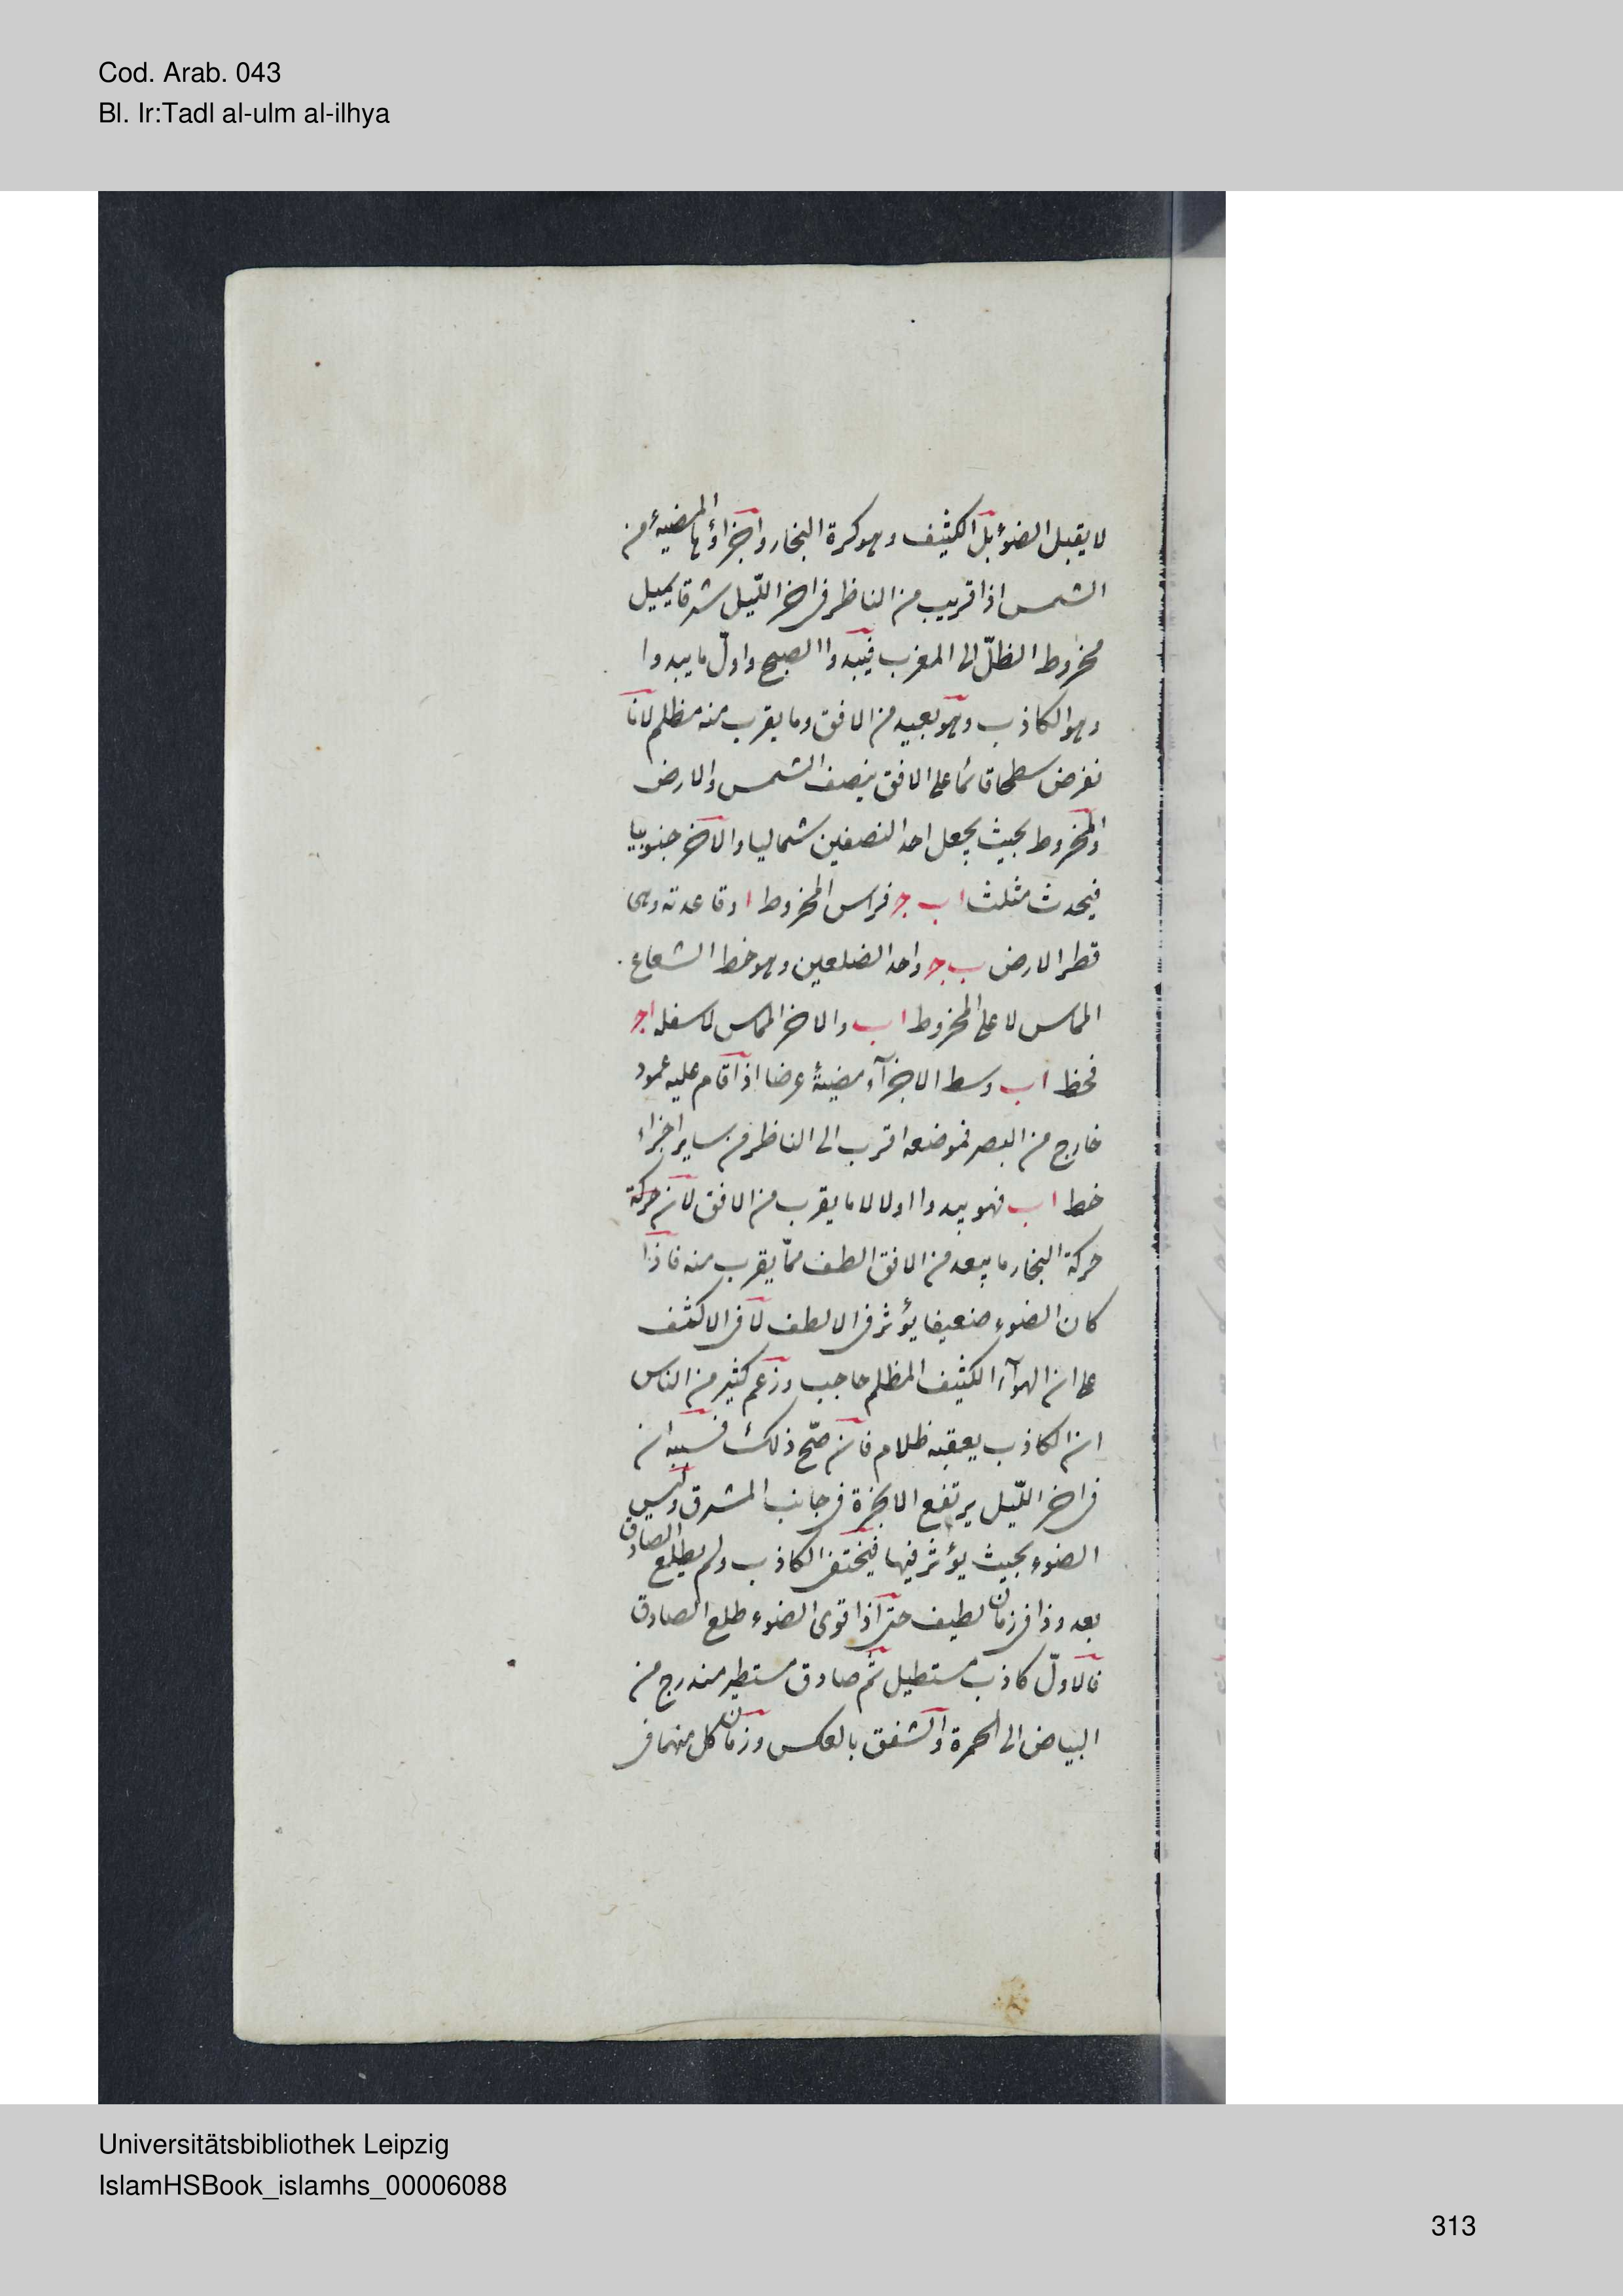 Cod. Arab. 043
Bl. Ir:Tadl al-ulm al-ilhya
لا يقبل الضوء بل الكثيف وهو كرة البخار واجزاؤها المضيئة من
الشمس اذا قريب من الناظر فى اخر الليل شرقا يميل
مخروط الظلّ الى المغرب فيبدوا الصبح واول ما يبدوا
وهو الكاذب وهو بعيد من الافق وما يقرب منه مظلم لانا
نفرض سطحا قائما على الافق ينصف الشمس والارض
والمخروط بحيث يجعل احد النصفين شماليا والاخر جنوبيا
فيحدث مثلث اب ج فراس المخروط ا وقاعدته وهى
قطر الارض ب ج واحد الضلعين وهو خط الشعاع
المماس لاعلى المخروط اب والاخر المماس لاسفله اج
فخط اب وسط الاجزآء مضيئة عرضا اذا قام عليه عمود
خارج من البصر فموضعه اقرب الى الناظر من ساير اجزاء
خط اب فهو يبدوا اولا لا ما يقرب من الافق لان حركة
حركة البخار ما يبعد من الافق الطف مما يقرب منه فاذا
كان الضوء ضعيفا يؤثر فى الالطف لا فى الاكثف
على ان الهوآء الكثيف المظلم حاجب وزعم كثير من الناس
ان الكاذب يعقبه ظلام فان صحّ ذلك فسببه ان
فى اخر الليل يرتفع الابخرة فى جانب المشرق وليس
الضوء بحيث يؤثر فيها فيختفى الكاذب ولم يطلع الصادق
بعد وذا فى زمان لطيف حتى اذا قوى الضوء طلع الصادق
فالاولّ كاذب مستطيل ثم صادق مستطير مندرج من
البياض الى الحمرة والشفق بالعكس وزمان كل منهما فى
Universitätsbibliothek Leipzig
IslamHSBook_islamhs_00006088
313